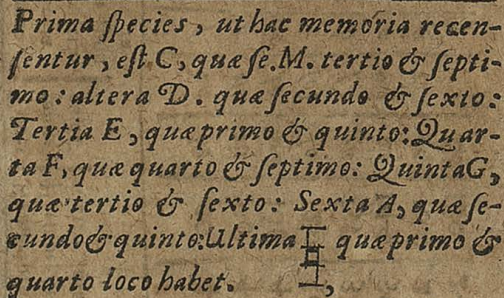 Prima ſpecies, ut hac memoria recen-
ſentur, eſt C, quæ ſe. M. tertio & ſepti-
mo: altera D. quæ ſecundo & ſexto:
Tertia E, quæ primo & quinto: Quar-
ta F, quæ quarto & ſeptimo: Quinta G,
quæ tertio & ſexto: Sexta A, quæ ſe-
cundo & quinto: Ultima quæ primo &
quarto loco habet.